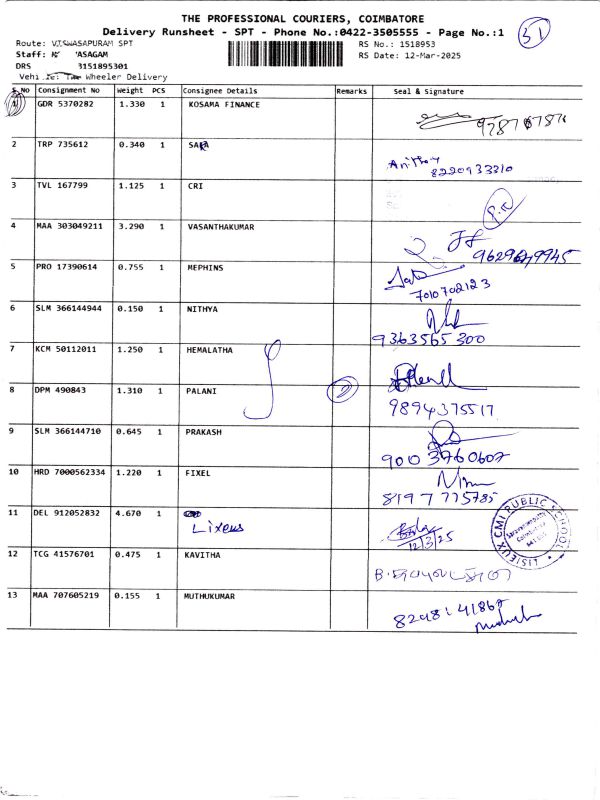 THE PROFESSIONAL COURIERS, COIMBATORE
Delivery Runsheet - SPT - Phone No.:0422-3505555 - Page No.:1
31
Route: VISWASAPURAM SPT
RS No.: 1518953
Staff: ASAGAM
RS Date: 12-Mar-2025
DRS 3151895301
Wheeler Delivery
S.No Consignment No Weight PCS Consignee Details Remarks Seal & Signature
1 GDR 5370282 1.330 1 KOSAMA FINANCE
2 TRP 735612 0.340 1 SARA
Anitha
8220933310
3 TVL 167799 1.125 1 CRI
4 MAA 303049211 3.290 1 VASANTHAKUMAR
5 PRO 17390614 0.755 1 MEPHINS
7010702123
6 SLM 366144944 0.150 1 NITHYA
9363565300
7 KCM 50112011 1.250 1 HEMALATHA
8 DPM 490843 1.310 1 PALANI 2
9894375517
9 SLM 366144710 0.645 1 PRAKASH
9003760607
10 HRD 7000562334 1.220 1 FIXEL
8197775785
11 DEL 912052832 4.670 1
12/3/25
LISIEUX CMI PUBLIC SCHOOL
12 TCG 41576701 0.475 1 KAVITHA
13 MAA 707605219 0.155 1 MUTHUKUMAR